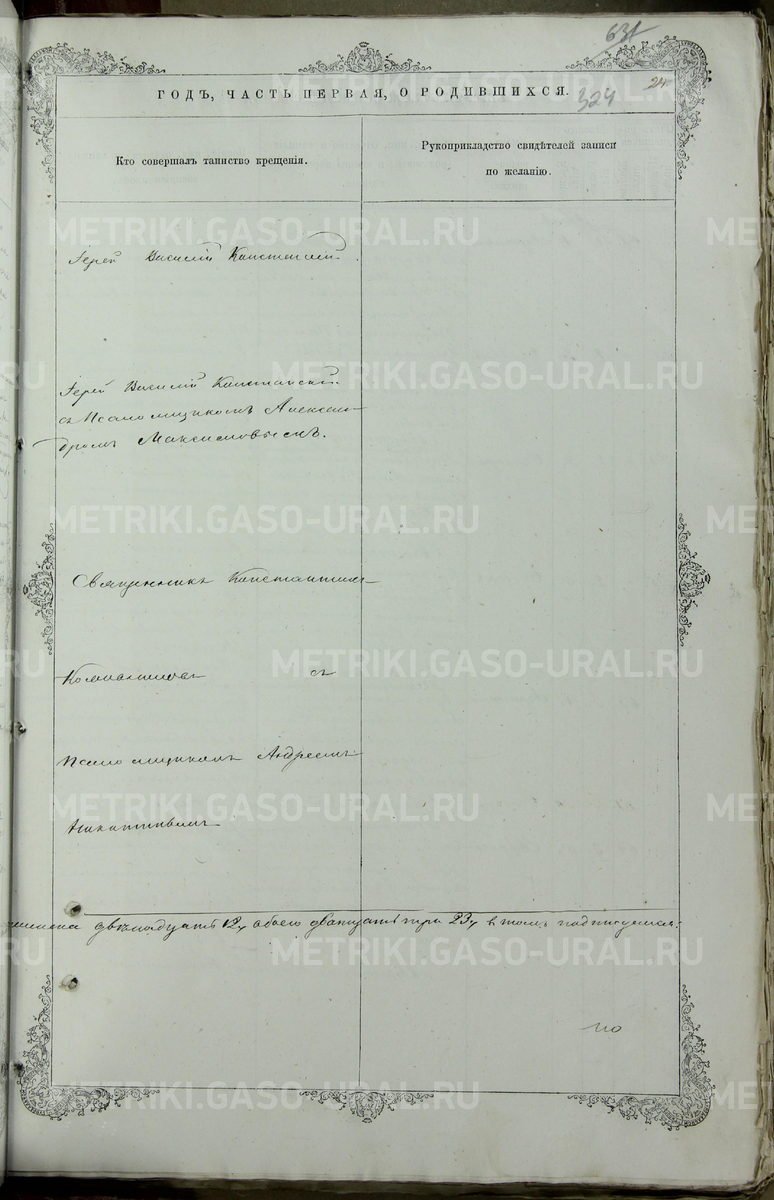 631
324
24
ГОДЪ, ЧАСТЬ ПЕРВАЯ, О РОДИВШИХСЯ.
Кто совершалъ таинство крещенія.
Рукоприкладство свидѣтелей записи
по желанію.
Іерей Василій
Іерей Василій
съ Псаломщикомъ Алексан-
дромъ Максимовымъ.
Священникъ Константинъ
съ
Псаломщикомъ Андреемъ
двѣнадцать 12, обоего двадцать три 23, в томъ подписуемся:
по
METRIKI.GASO-URAL.RU